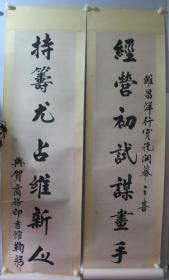 維昌洋行寶號開幕之喜
經營初試謀畫手
持籌尤占維新人
賀商務印書館鞠躬